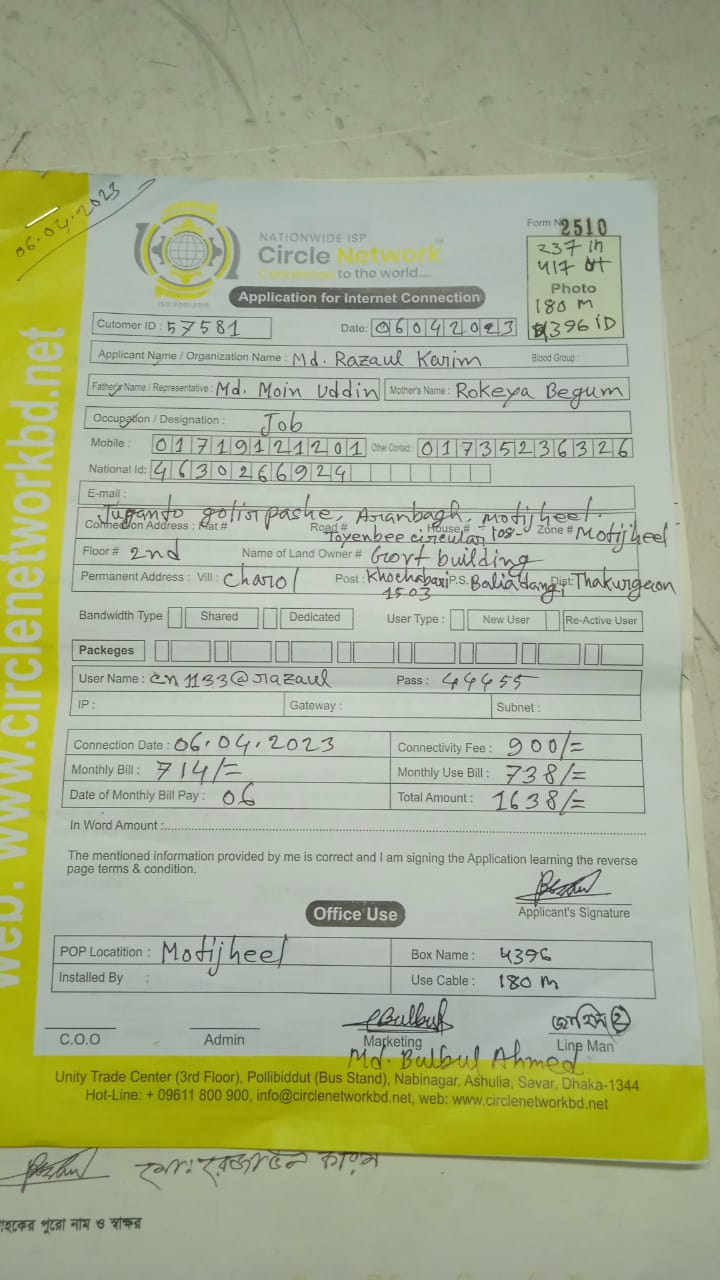 06.04.2023
web: www.circlenetworkbd.net
NATIONWIDE ISP
Circle Network
Connected to the world.....
ISO 9001:2015
Form No 2510
237 in
417 ot
Photo
180 m
4396 iD
Application for Internet Connection
Cutomer ID : 57581 Date: 06042023
Applicant Name / Organization Name : Md. Razaul Karim Blood Group :
Father's Name / Representative : Md. Moin Uddin Mother's Name : Rokeya Begum
Occupation / Designation : Job
Mobile : 01719121201 Other Contact : 01735236326
National Id: 4630266924
E-mail :
Juganto golir pashe, Arambagh, motijheel.
Connection Address : Flat # Road # Toyenbee circular House,# 108 Zone # Motijheel
Floor # 2nd Name of Land Owner # Govt building
Permanent Address : Vill : Charol Post : Khochabari 1503 P.S. Baliadangi Dist: Thakurgaon
Bandwidth Type Shared Dedicated User Type : New User Re-Active User
Packeges
User Name : cn1133@razaul Pass : 44455
IP : Gateway : Subnet :
Connection Date : 06.04.2023 Connectivity Fee : 900/=
Monthly Bill : 714/= Monthly Use Bill : 738/=
Date of Monthly Bill Pay : 06 Total Amount : 1638/=
In Word Amount :
The mentioned information provided by me is correct and I am signing the Application learning the reverse
page terms & condition.
Applicant's Signature
Office Use
POP Locatition : Motijheel Box Name : 4396
Installed By : Use Cable : 180 m
Bulbul
C.O.O Admin Marketing Line Man
Md. Bulbul Ahmed
Unity Trade Center (3rd Floor), Pollibiddut (Bus Stand), Nabinagar, Ashulia, Savar, Dhaka-1344
Hot-Line: + 09611 800 900, info@circlenetworkbd.net, web: www.circlenetworkbd.net
মোঃ রেজাউল করিম
পুরো নাম ও স্বাক্ষর